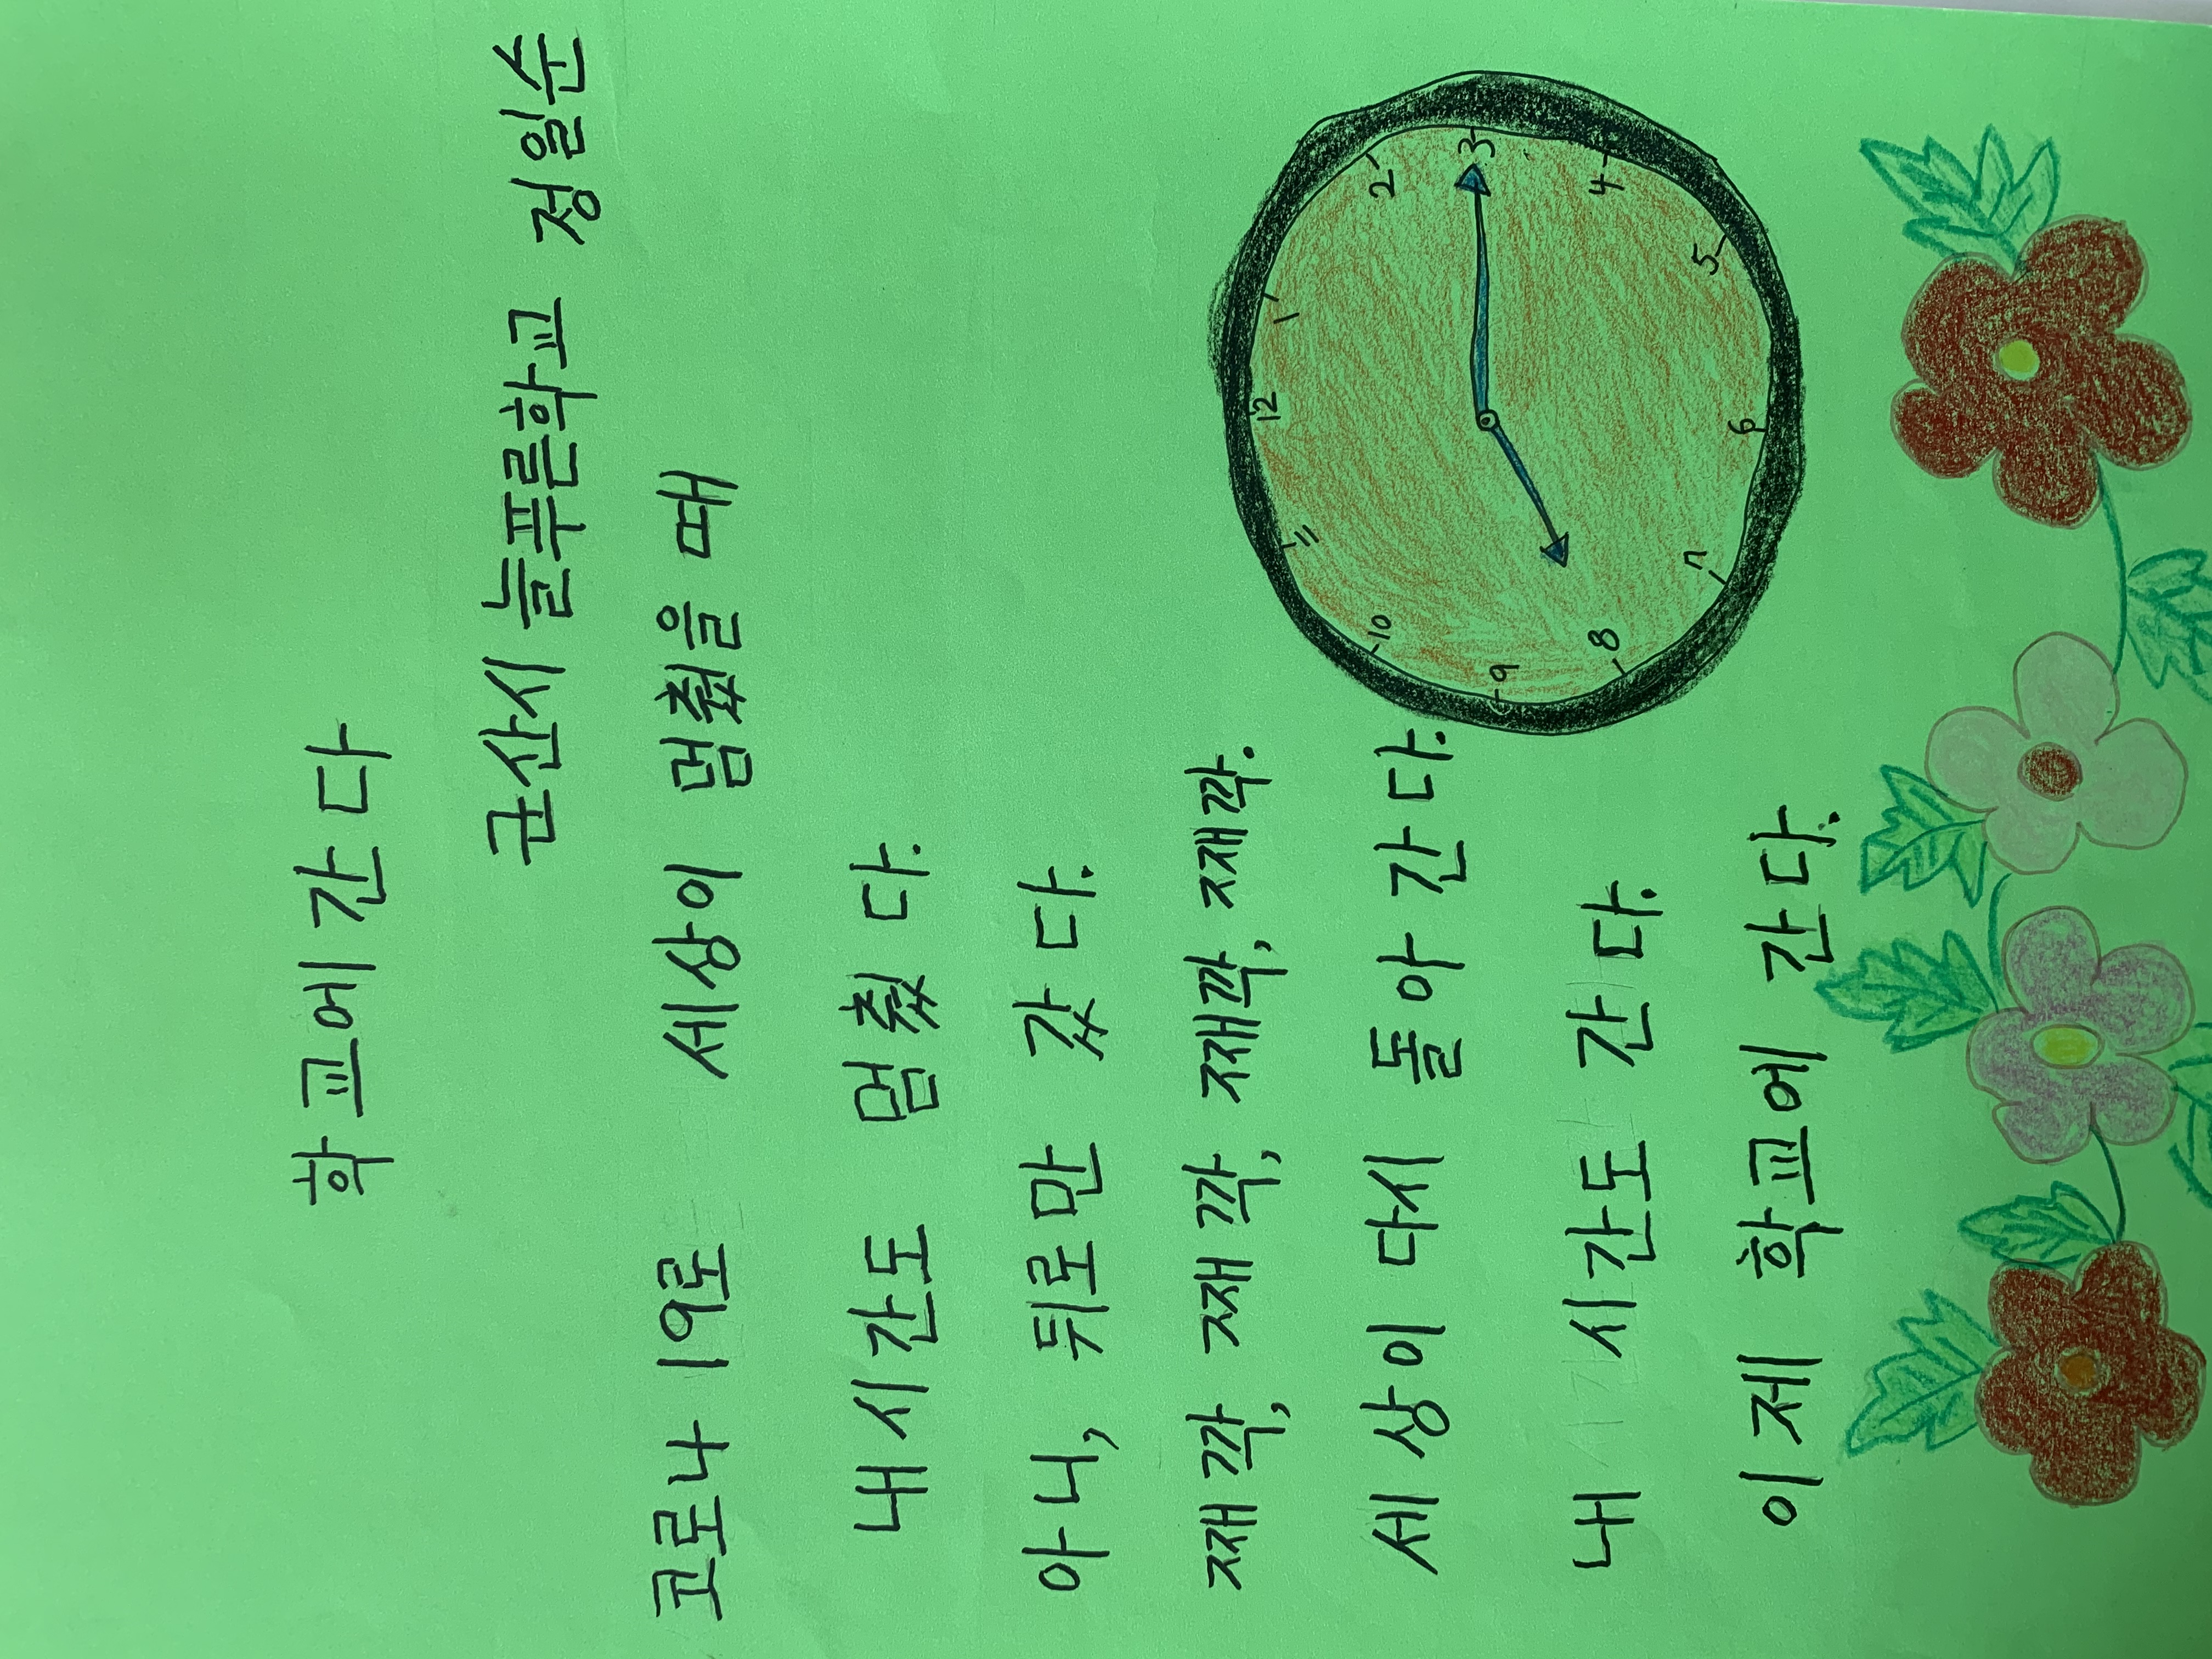 학교에 간다
군산시 늘푸른학교 정일순
코로나 19로 세상이 멈췄을 때
내 시간도 멈췄다.
아니, 뒤로만 갔다.
째깍, 째깍, 째깍, 째깍.
세상이 다시 돌아간다.
내 시간도 간다.
이제 학교에 간다.
12
1
2
3
4
5
6
7
8
9
10
11